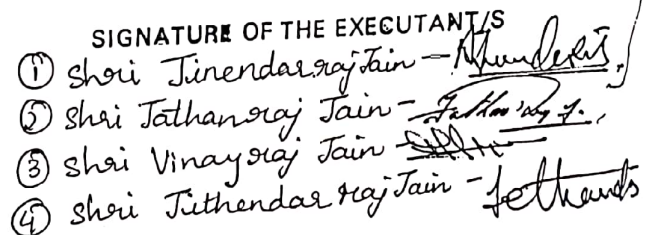 SIGNATURE OF THE EXECUTANT/S
① Shri Jinendarraj Jain -
② Shri Jathanraj Jain -
③ Shri Vinayraj Jain -
④ Shri Juthendar raj Jain -